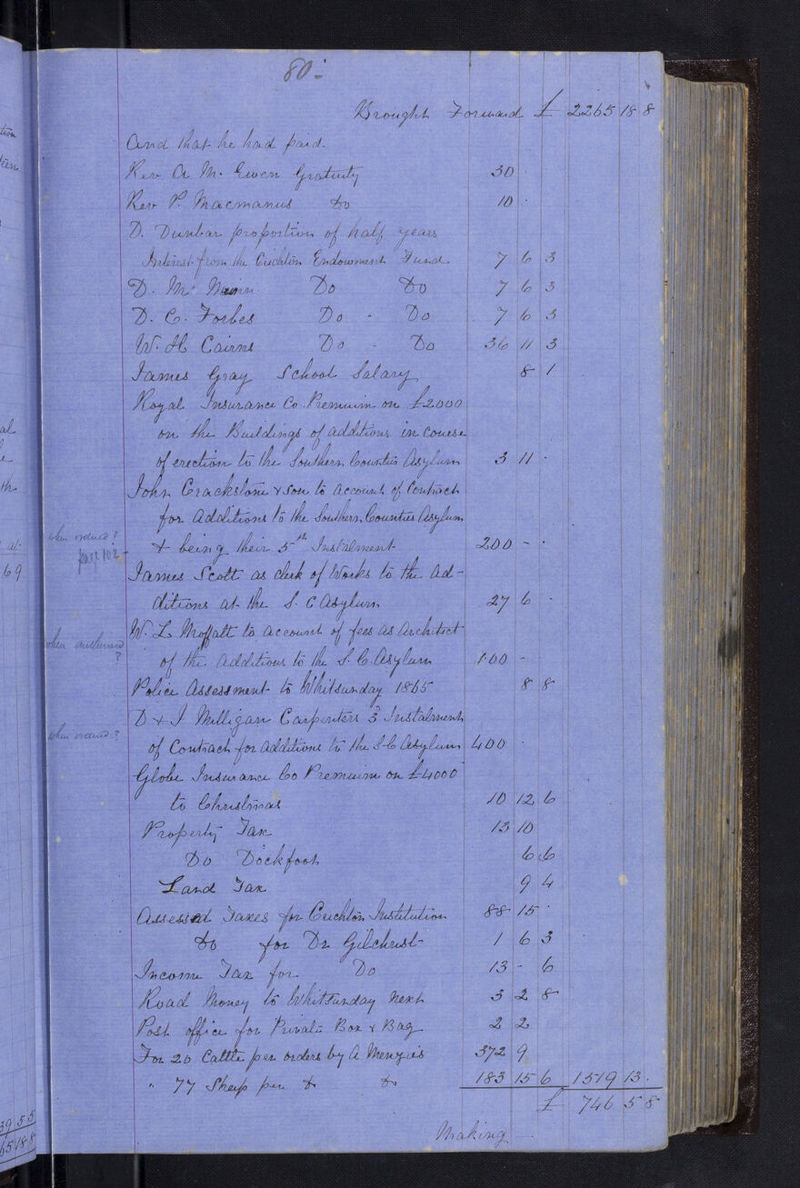 80
Brought Forward £ 2265 18 8
And that he had paid
Rev A M. Ewen Gratuity 30
Rev P. Macmanus Do 10 .
D. Dunbar proportion of half years
Interest from the Crichton Endowment Fund 7 6 3
D. Mc Do Do 7 6 3
D. C. Forbes Do - Do 7 6 3
W. H Cairns Do - Do 36 11 3
James Gray School Salary 8 1
Royal Insurance Co. Premium on £2000
on the Buildings of additions in course
of erection to the Southern Counties Asylum 3 11 .
John Crackstone & Son to account of Contract
for additions to the Southern Counties Asylum
when ordered?
page 102
& being their 5th Instalment 200 - .
James Scott as clerk of Works to the ad-
ditions at the S. C Asylum 27 6 .
W. L Moffatt to account of fees as Architect
when authorised
?
of the additions to the S. C. Asylum 100 -
Police Assessment to Whitsunday 1865 8 8
D & J Milligan Carpenters 3 Instalment
when ordered?
of Contract for additions to the S C Asylum 400 .
Globe Insurance Co Premium on £4000
to Christmas 10 12 6
Property Tax 13 10
Do Dockfoot 6 6
Land Tax 9 4
Assessed Taxes for Crichton Institution 88 15 .
Do for Dr Gilchrist 1 6 3
Income Tax for Do 13 - 6
Road Money to Whitsunday next 3 2 8
Post office for Private Box & Bag 2 2
For 20 Cattle per orders by A Menzies 372 9
" 77 Sheep per Do Do 183 15 6 1519 13 .
£ 746 5 8
Making